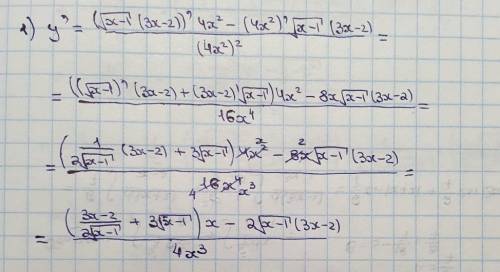 1) y' = ((√(x-1) (3x-2))' 4x² - (4x²)' √(x-1) (3x-2)) / (4x²)² =
= (((√(x-1))' (3x-2) + (3x-2)' √(x-1)) 4x² - 8x√(x-1) (3x-2)) / 16x⁴ =
= ((1/(2√(x-1)) (3x-2) + 3√(x-1)) 4x² x - 8x 2 √(x-1) (3x-2)) / 4 16x⁴ x³ =
= (((3x-2)/(2√(x-1)) + 3√(x-1)) x - 2√(x-1) (3x-2)) / 4x³